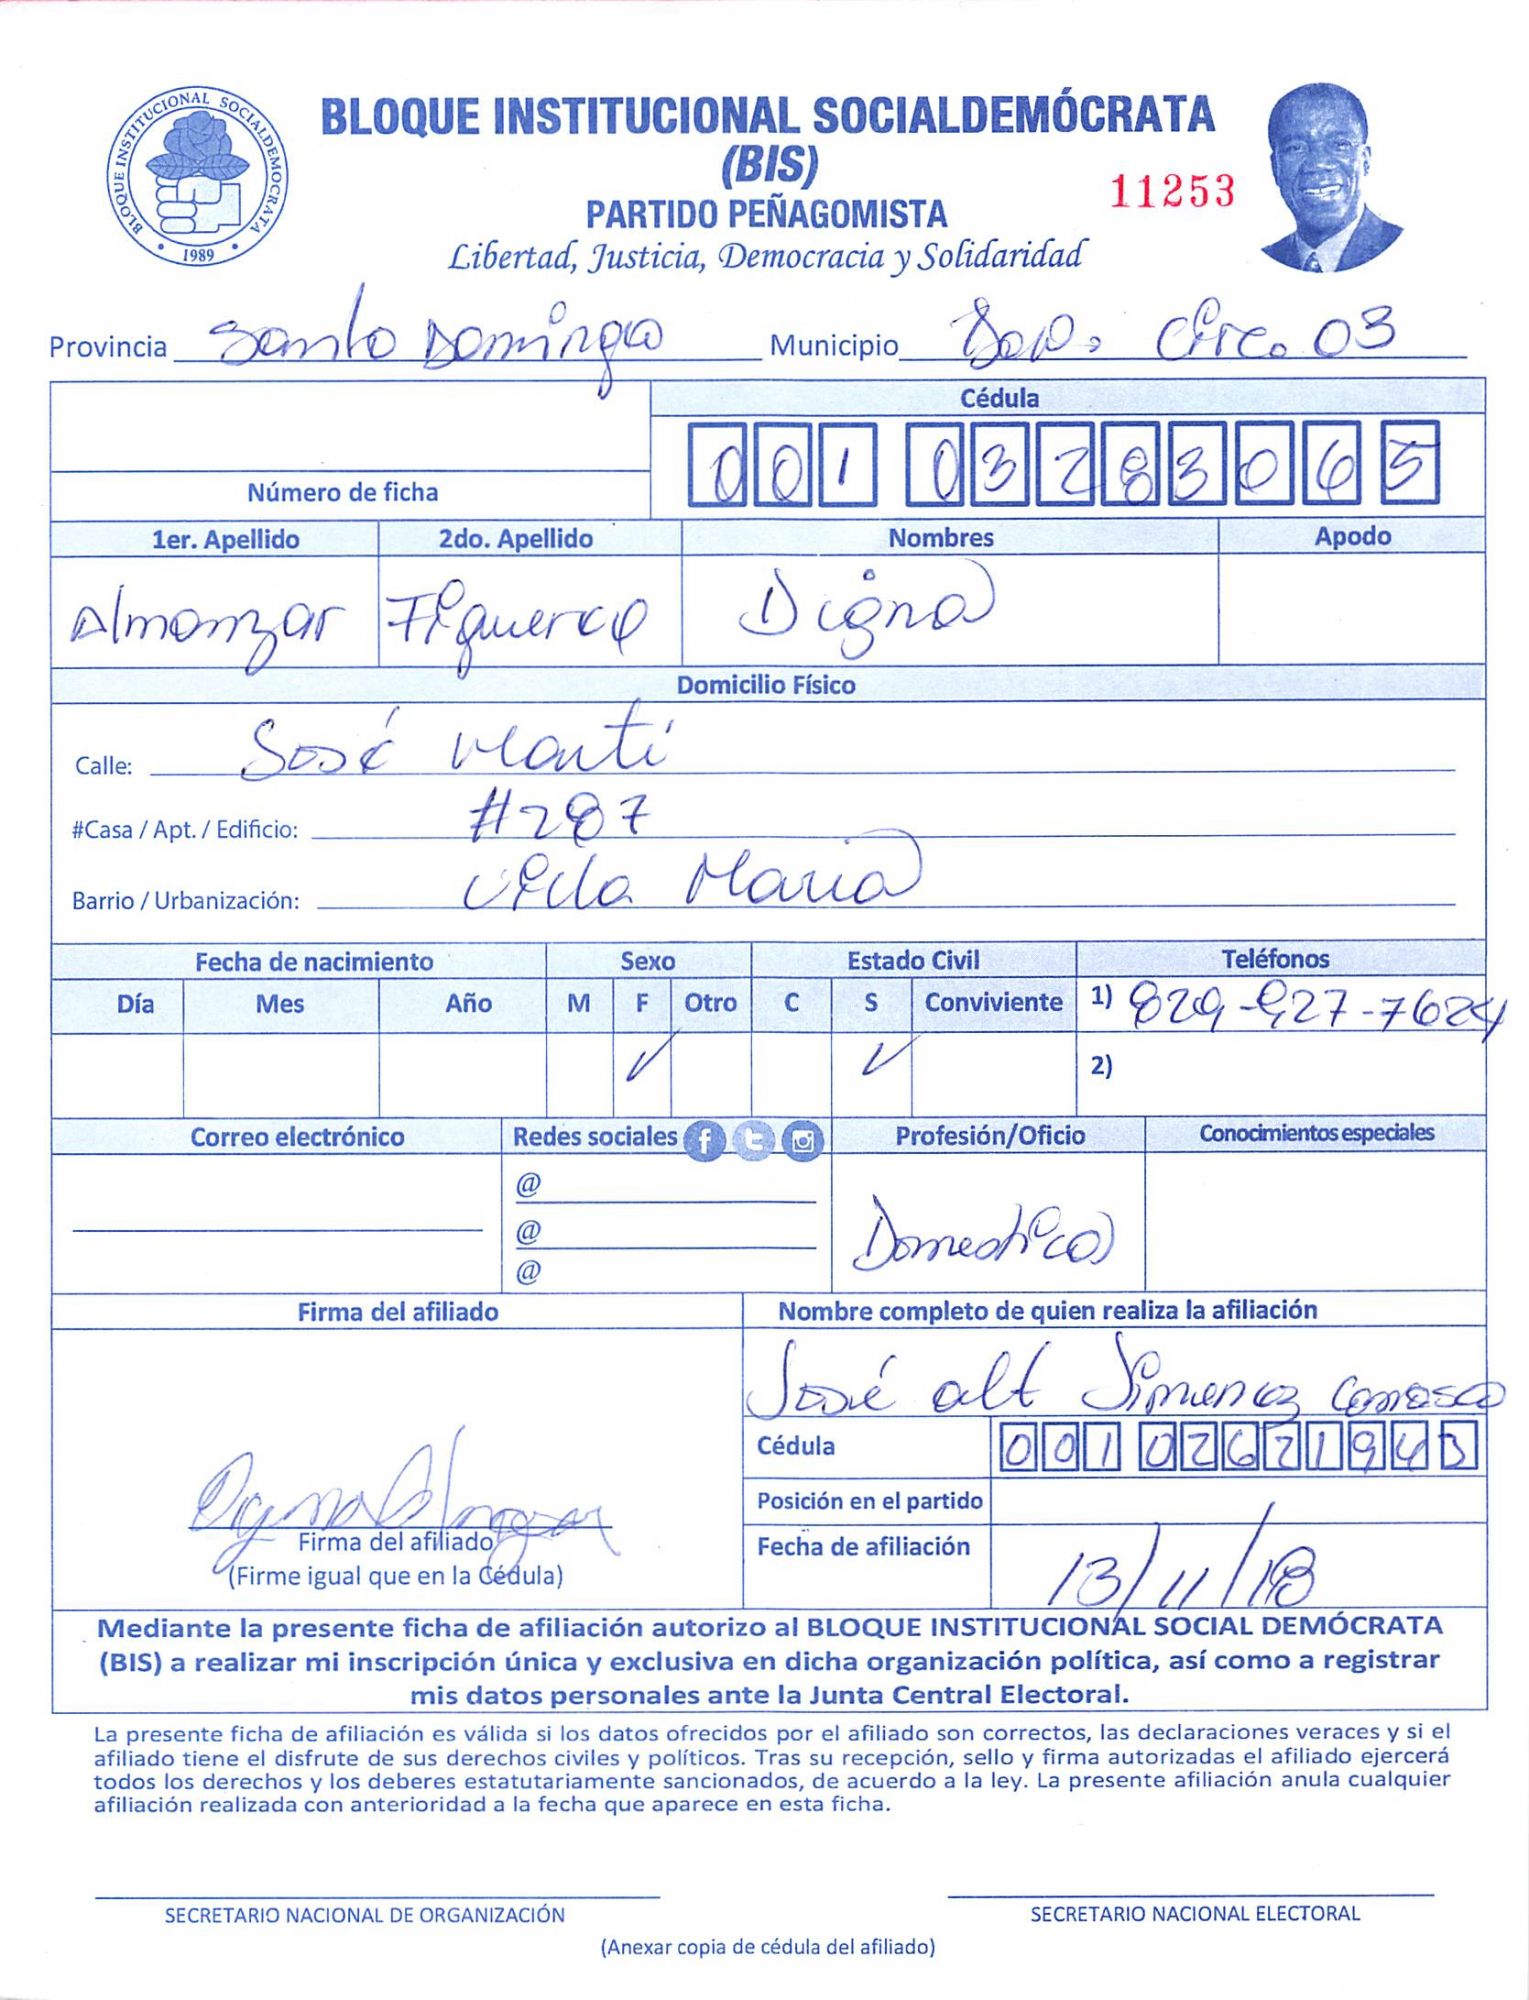 BLOQUE INSTITUCIONAL SOCIALDEMOCRATA
1989
BLOQUE INSTITUCIONAL SOCIALDEMÓCRATA
(BIS)
11253
PARTIDO PEÑAGOMISTA
Libertad, Justicia, Democracia y Solidaridad
Provincia Santo Domingo Municipio Circ. 03
Cédula
001 0328306 5
Número de ficha
1er. Apellido 2do. Apellido Nombres Apodo
Almanzar Figuereo Digna
Domicilio Físico
Calle: José Martí
#Casa / Apt. / Edificio: #287
Barrio / Urbanización: Villa Maria
Fecha de nacimiento Sexo Estado Civil Teléfonos
Día Mes Año M F Otro C S Conviviente 1) 829-927-7624
✓ ✓ 2)
Correo electrónico Redes sociales Profesión/Oficio Conocimientos especiales
@
@
@
Domestica
Firma del afiliado Nombre completo de quien realiza la afiliación
José alt Jimenez
Cédula 001 0262194
Digna Almanzar
Posición en el partido
Firma del afiliado
Fecha de afiliación 13/11/18
(Firme igual que en la Cédula)
Mediante la presente ficha de afiliación autorizo al BLOQUE INSTITUCIONAL SOCIAL DEMÓCRATA
(BIS) a realizar mi inscripción única y exclusiva en dicha organización política, así como a registrar
mis datos personales ante la Junta Central Electoral.
La presente ficha de afiliación es válida si los datos ofrecidos por el afiliado son correctos, las declaraciones veraces y si el
afiliado tiene el disfrute de sus derechos civiles y políticos. Tras su recepción, sello y firma autorizadas el afiliado ejercerá
todos los derechos y los deberes estatutariamente sancionados, de acuerdo a la ley. La presente afiliación anula cualquier
afiliación realizada con anterioridad a la fecha que aparece en esta ficha.
SECRETARIO NACIONAL DE ORGANIZACIÓN SECRETARIO NACIONAL ELECTORAL
(Anexar copia de cédula del afiliado)